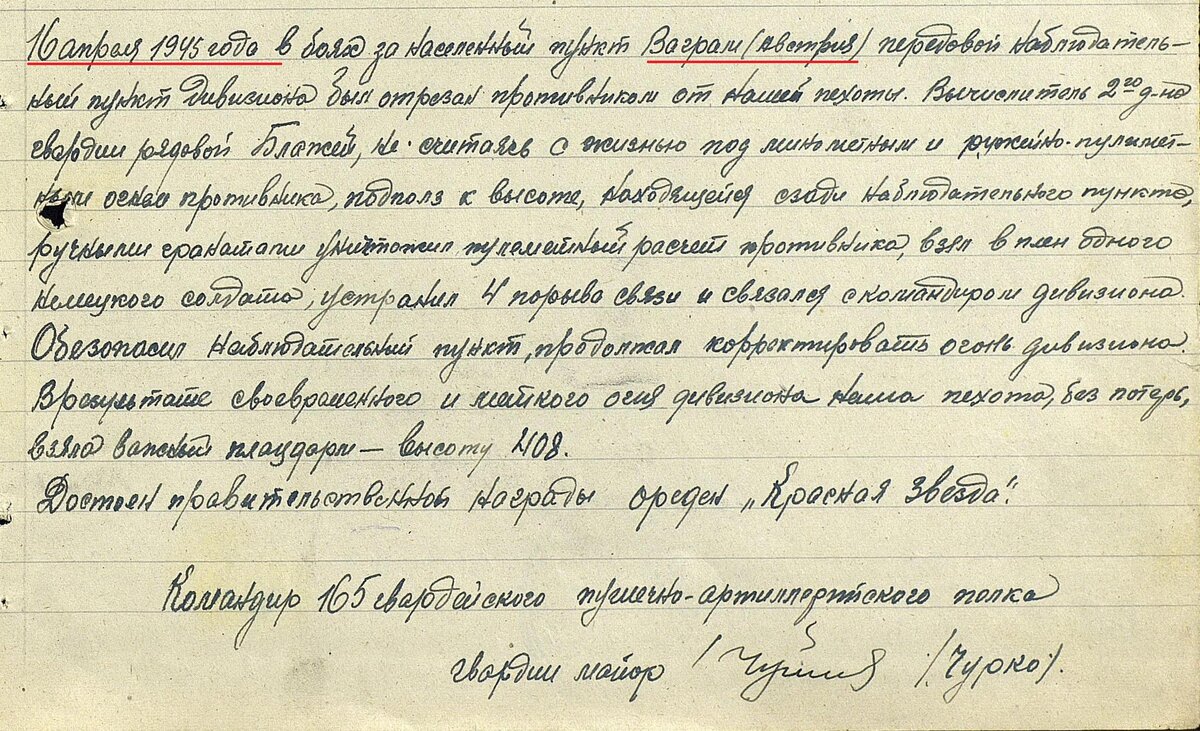 16 апреля 1945 года в боях за населенный пункт Ваграм (Австрия) передовой наблюдатель-
ный пункт дивизиона был отрезан противником от нашей пехоты. Вычислитель 2го д-на
гвардии рядовой Блажей, не считаясь с жизнью под минометным и ружейно-пулемет-
ным огнем противника, подполз к высоте, находящейся сзади наблюдательного пункта,
ручными гранатами уничтожил пулеметный расчет противника, взял в плен одного
немецкого солдата, устранил 4 порыва связи и связался с командиром дивизиона.
Обезопасил наблюдательный пункт, продолжал корректировать огонь дивизиона.
В результате своевременного и меткого огня дивизиона наша пехота, без потерь,
взяла важный плацдарм — высоту 408.
Достоен правительственной награды орден „Красная Звезда".
Командир 165 гвардейского пушечно-артиллерийского полка
гвардии майор / / Чурко /.